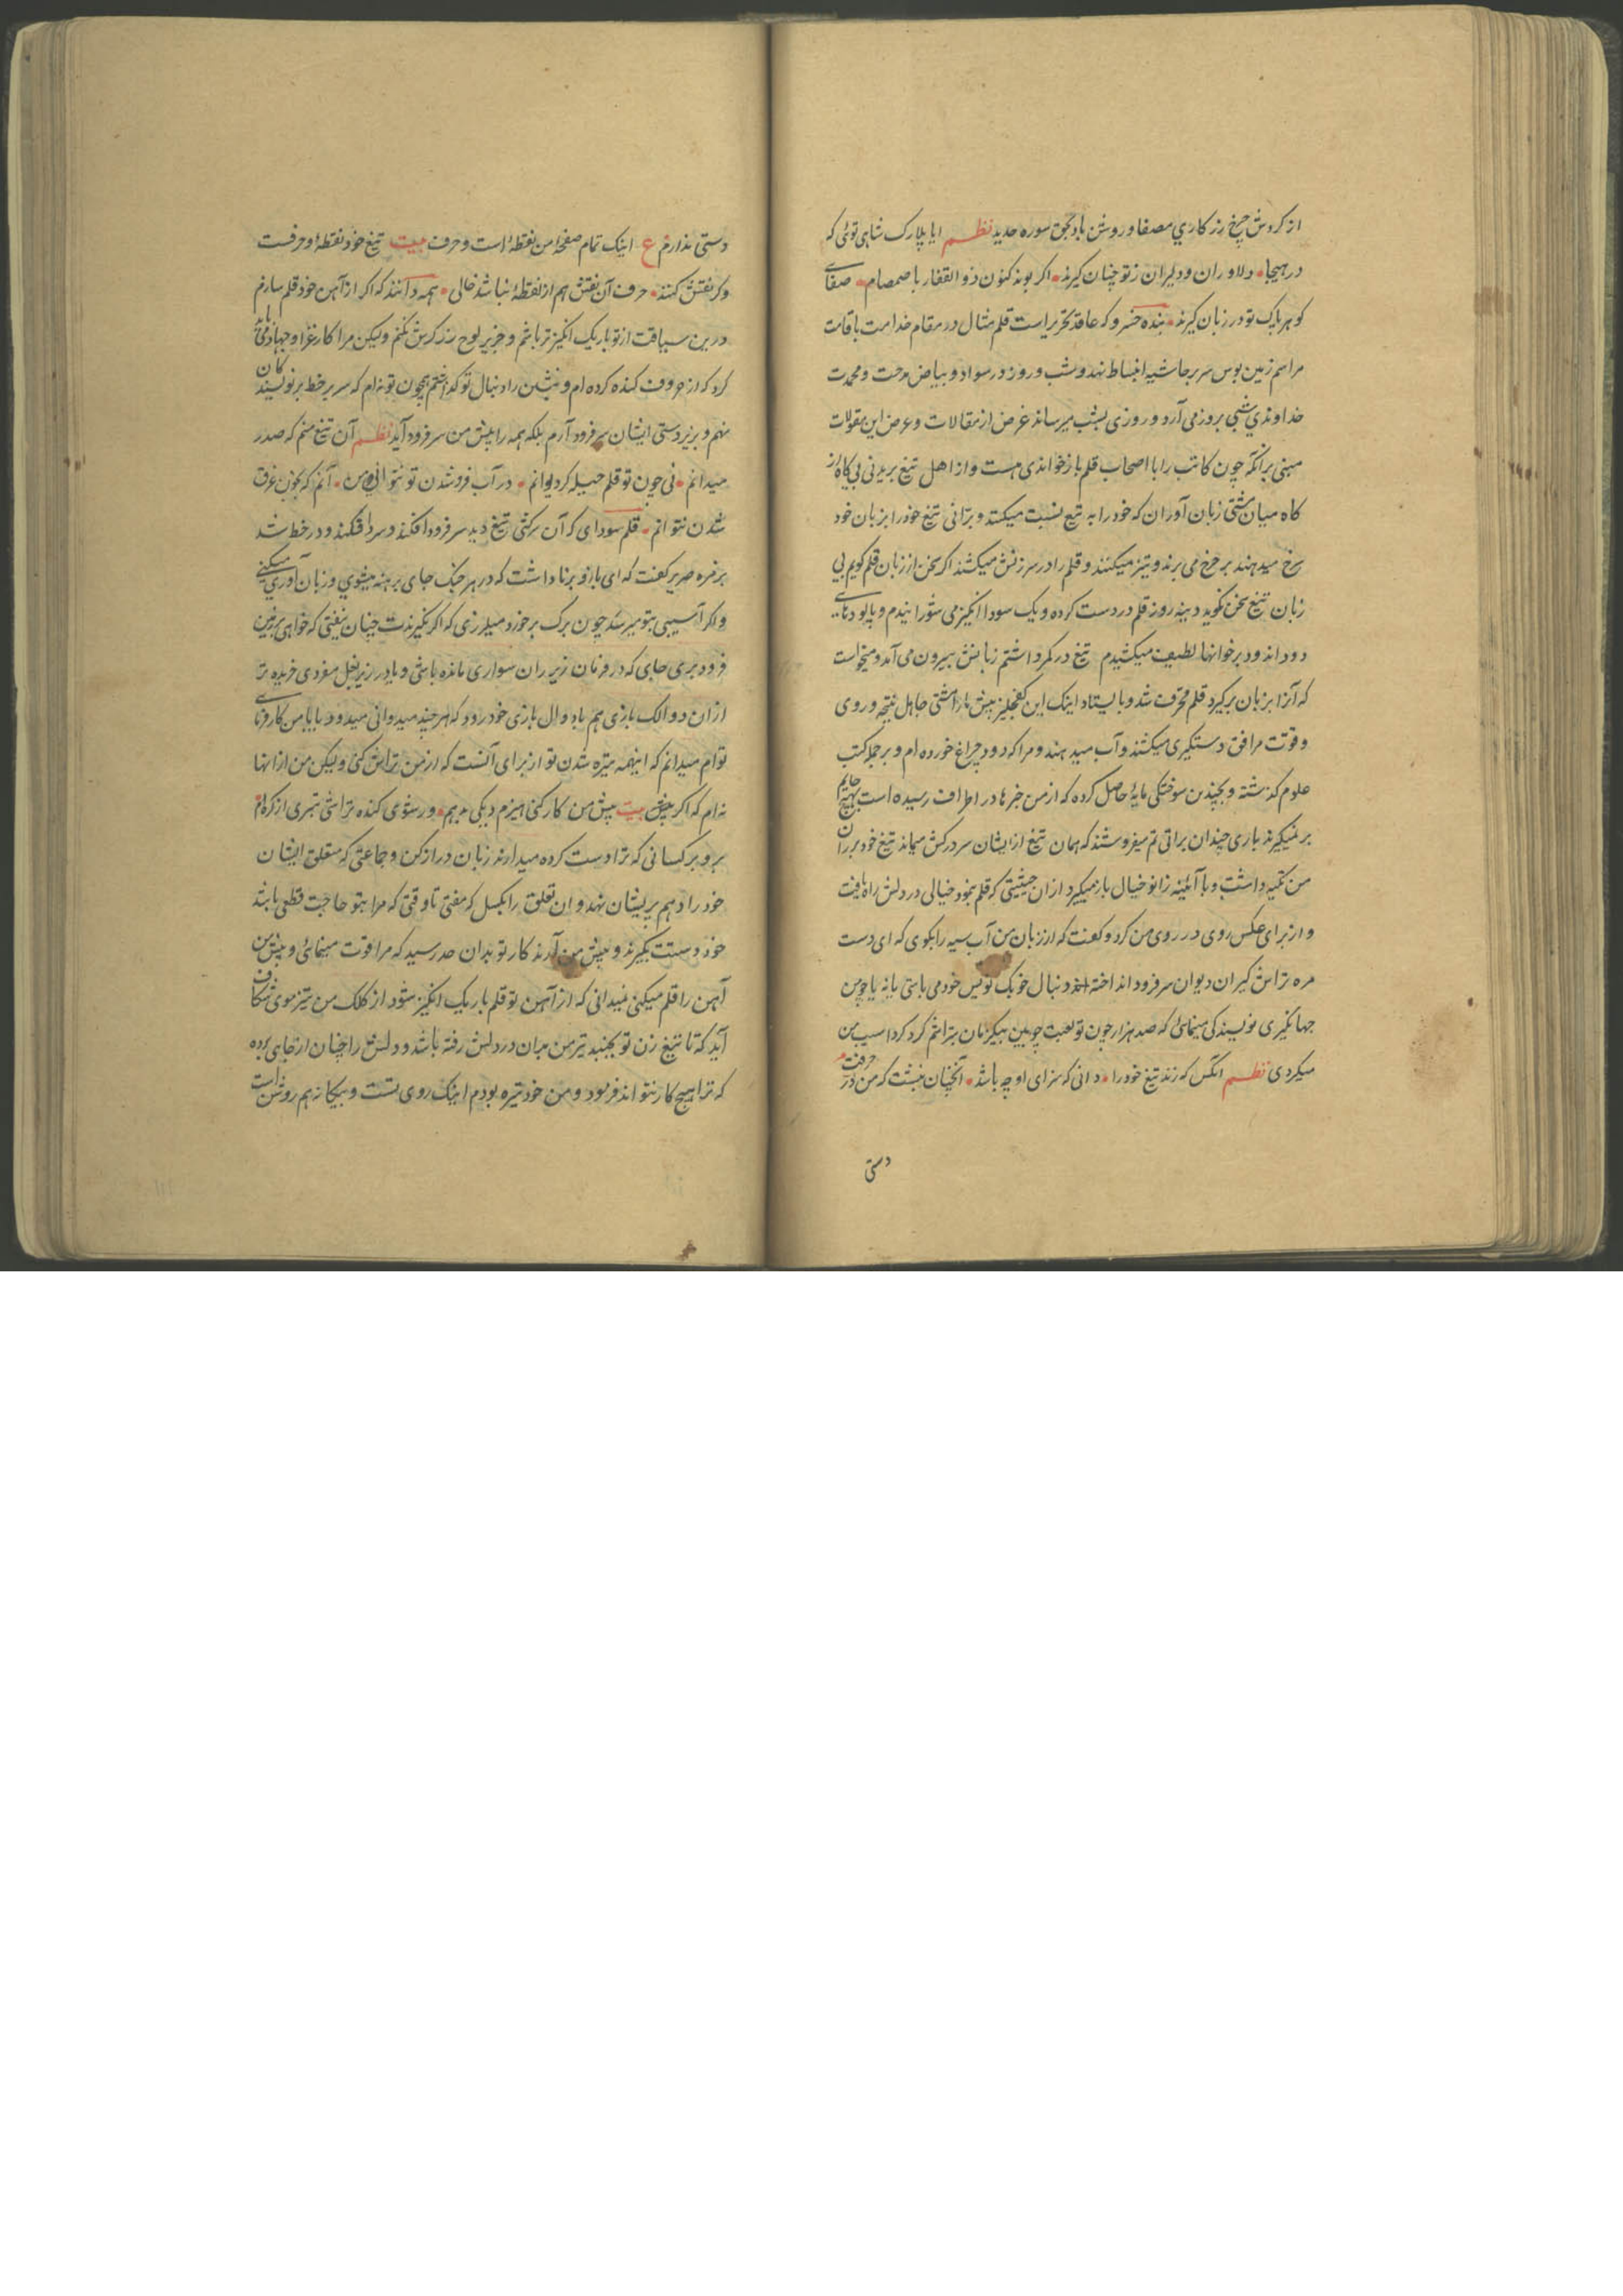 از کردش چرخ زر کاري مصفا و روشن باد بحق سوره حدید نظم ایا پلارک شاهی توئی که
در هیجا دلاوران و دلیران ز تو چنان کیرند اکر بوند کنون ذو الفقار با صمصام صفای
کوهر پاک تو در زبان کیرند بنده خسرو که عاقد تحریر است قلم مثال در مقام خدامت باقامت
مراسم زمین بوس سر بر حاشیه انبساط نهد و شب و روز در سواد و بیاض مدحت و محمدت
خداوندي شبی بروز می آرد و روزی بشب میرساند غرض از مقالات و عرض این مقولات
مبنی بر آنکه چون کاتب را با اصحاب قلم بازخواندی هست و از اهل تیغ بریدنی بی کاه از
کاه میان مشتی زبان آوران که خود را به تیغ نسبت میکنند و برّانی تیغ خود را بزبان خود
نرخ میدهند بر چرخ می برند و تیز میکنند و قلم را در سرزنش میکشند اکر سخن از زبان قلم کویم بی
زبان تیغ سخن نکوید دینه روز قلم در دست کرده و یک سودا انکیز می شورانیدم و پالودهای
دود اندود بر خوانها لطیف میکشیدم تیغ در کمر داشتم زبانش بیرون می آمد و میخواست
که آنرا بزبان برکیرد قلم محرف شد و بایستاد اینک این کفچلیز پیش ما را مشتی جاهل نتیجه و روی
و قوت مرافق دستکیری میکنند و آب میدهند و مرا که دود چراغ خورده ام و بر جمله کتب
علوم کذشته و بچندین سوختکی مایهٔ حاصل کرده که از من خبرها در اطراف رسیده است بهیچ جایم
بر نمیکیرند باری چندان براتی تم میفروشند که همان تیغ از ایشان سردرکش میماند تیغ خود بر ران
من تکیه داشت و با آئینه زانو خیال باز میکیرد از ان حیثیتی که قلم بنمود خیالی در دلش راه یافت
و از برای عکس روی در روی من کرد و کفت که از زبان من آب سیه را بکوی که ای دست
مره تراش کیران دیوان سر فرود انداخته دنبال خوبک نویس خود می باشی یا نه یا چون
جهانکیری نویسندکی مینمائی که صد هزار چون تو لعبت چوبین بیکزمان بتراشم کرد کرد اسیب من
میکردی نظم انکس که زند تیغ خود را دانی که سزای او چه باشد آنچنان نبشت که من در حرفت
دستی
دستی ندارم ع اینک تمام صفحه من نقطه است و حرف بیت تیغ خود نقطه و حرفست
و کر نقش کنند حرف آن نقش هم از نقطهٔ نباشد خالی همه دانند که اکر از آهن خود قلم سازم
درین سیاقت از تو باریک انکیز تر باشم و خزیر لوح زرکرش نکنم ولیکن مرا کار غزا و جهاد می باید
کرد که از حروف کنده کرده ام و نبشتن را دنبال تو کذاشتم همچون تو نه ام که سر بر خط بر نویسندکان
نهم و بزیر دستی ایشان سر فرود آرم بلکه همه را پیش من سر فرود آید نظم آن تیغ منم که صدر
میدانم نی چون تو قلم حیله کر دیوانم در آب فرو شدن تو نتوانی و من آنم که بخون غرق
شدن نتوانم قلم سودای که آن سرکشی تیغ دید سر فرود افکند و سر دافکند و در خط شد
بزمزه صریر کفت که ای بازو برنا داشت که در هر جنک جای برهنه میشوي و زبان آوری میکنی
و اکر آسیبی بتو میرسد چون برک بر خود میلرزی که اکر نکیرندت چنان بیفتی که خواهی بزمین
فرود بری جای که در فرمان زیر ران سواری مانده باشی و یا در زیر بغل مفردی خزیده تر
ازان دوالک بازی هم باد وال بازی خود رود که هر چند میدوانی میدود بیا با من کار فرمای
توام میدانم که اینهمه تیره شدن تو از برای آنست که از من تراش کنی ولیکن من از انها
نه ام که اکر بیش بیت پیش من کار کنی هیزم دیکی بدهم ور شوی کنده تراشی تبری از کره ام
برو بر کسانی که ترا دست کرده میدارند زبان دراز کن و جماعتی که متعلق ایشان
خود را دهم پریشان نهد و ان تعلق را بکسل که مفتی تا وقتی که مرا بتو حاجت قطی باشد
خود دستت بکیرند و پیش من آرند کار تو بدان حد رسید که مرا قوت مینمائی و پیش من
آهن را قلم میکنی نمیدانی که از آهن تو قلم باریک انکیز شود از کلک من تیز موی شکاف
آید که تا تیغ زن تو بجنبد تیر من میان در دلش رفته باشد و دلش را چنان از جای برده
که ترا هیچ کار نتواند فرمود و من خود تیره بودم اینک روی تست و بیکار هم روشن است